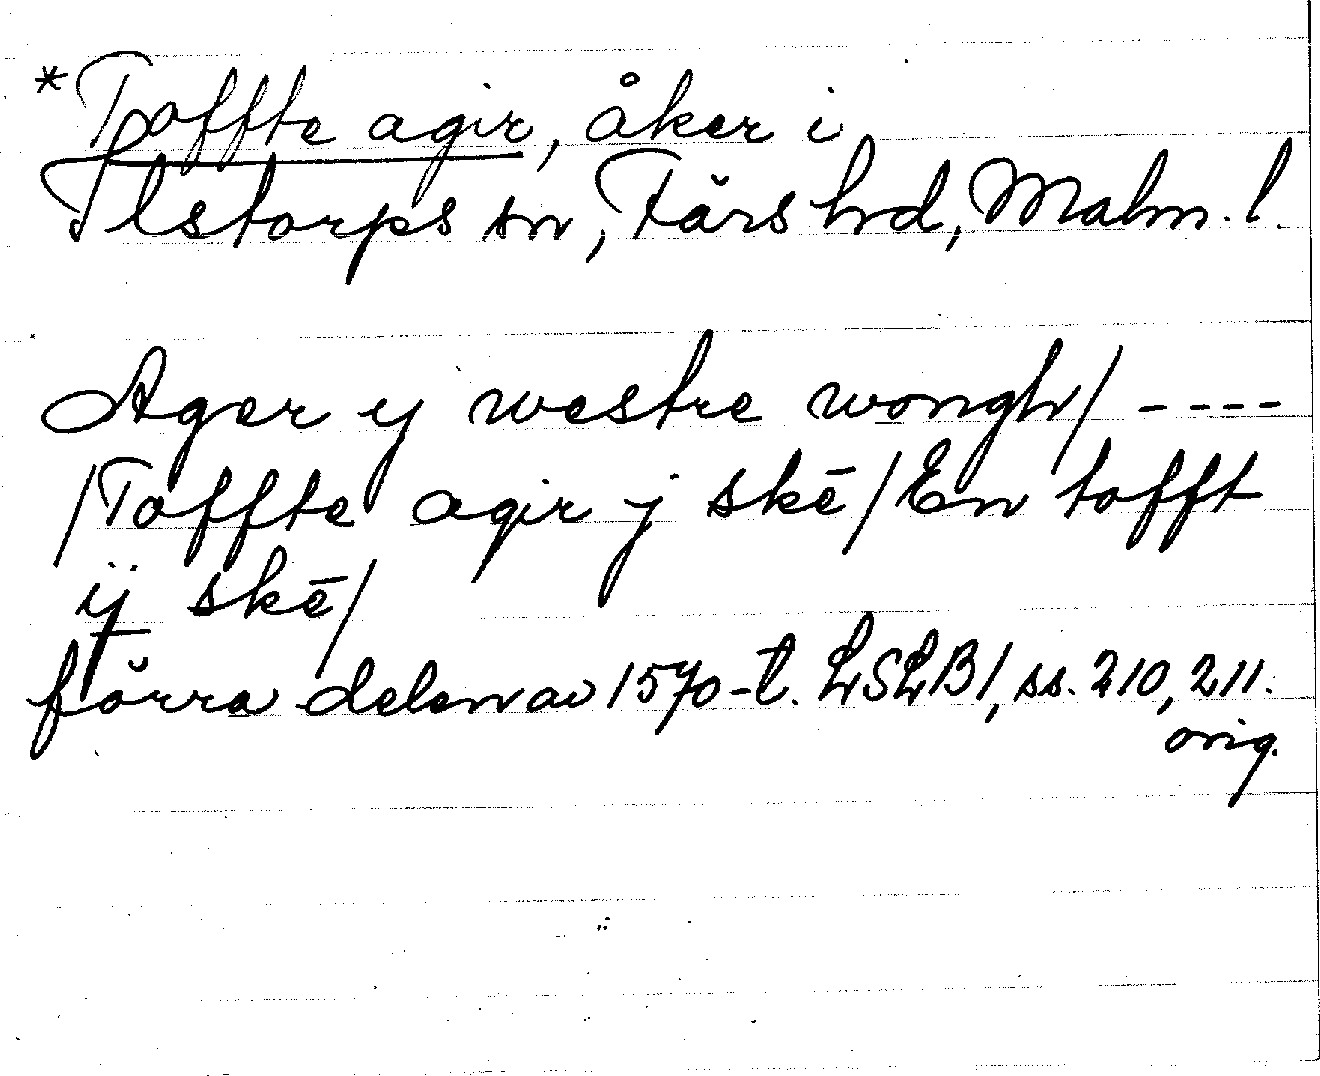 *Toffte agir, åker i
Ilstorps sn, Färs hd, Malm. l.
Ager y westre wongh/ ----
/Toffte agir j skē/ En tofft
ÿ skē/
förra delen av 1570-t. LSLB1, ss. 210, 211.
orig.